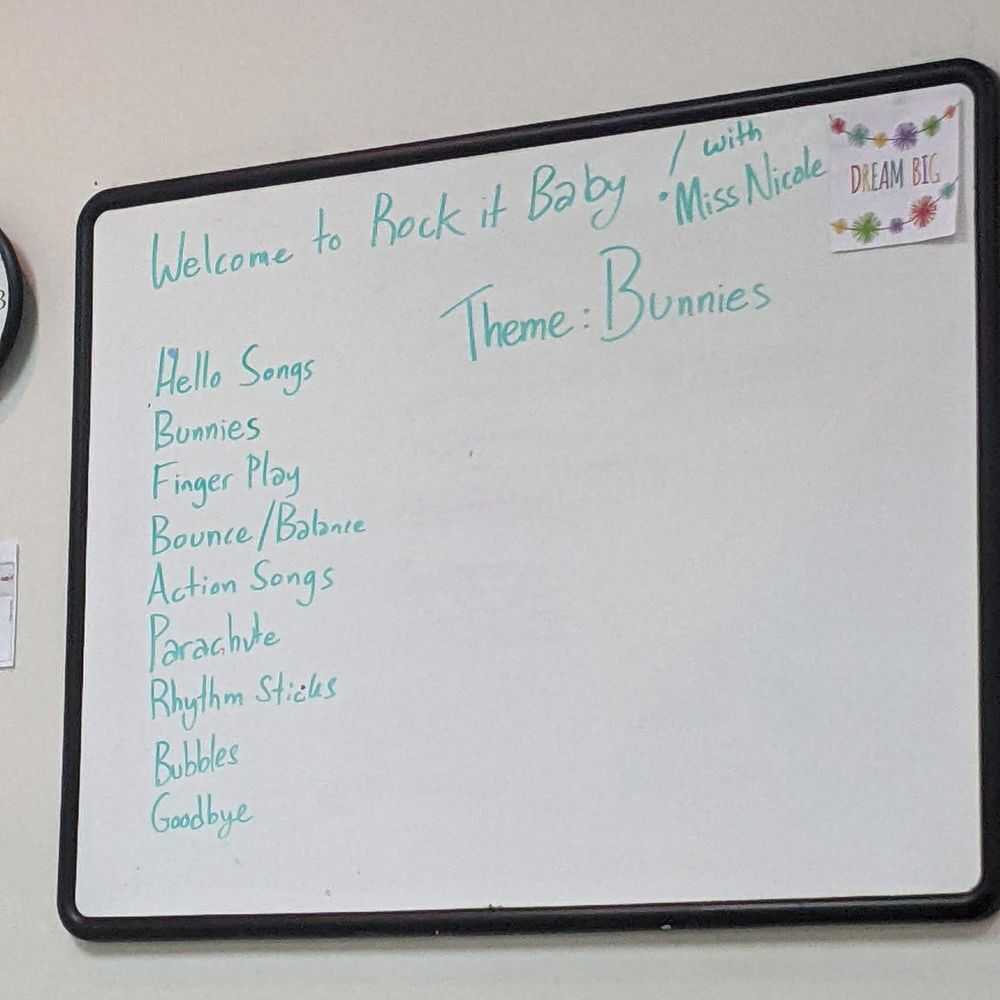 Welcome to Rock it Baby / with
• Miss Nicole
DREAM BIG
Theme: Bunnies
Hello Songs
Bunnies
Finger Play
Bounce/Balance
Action Songs
Parachute
Rhythm Sticks
Bubbles
Goodbye